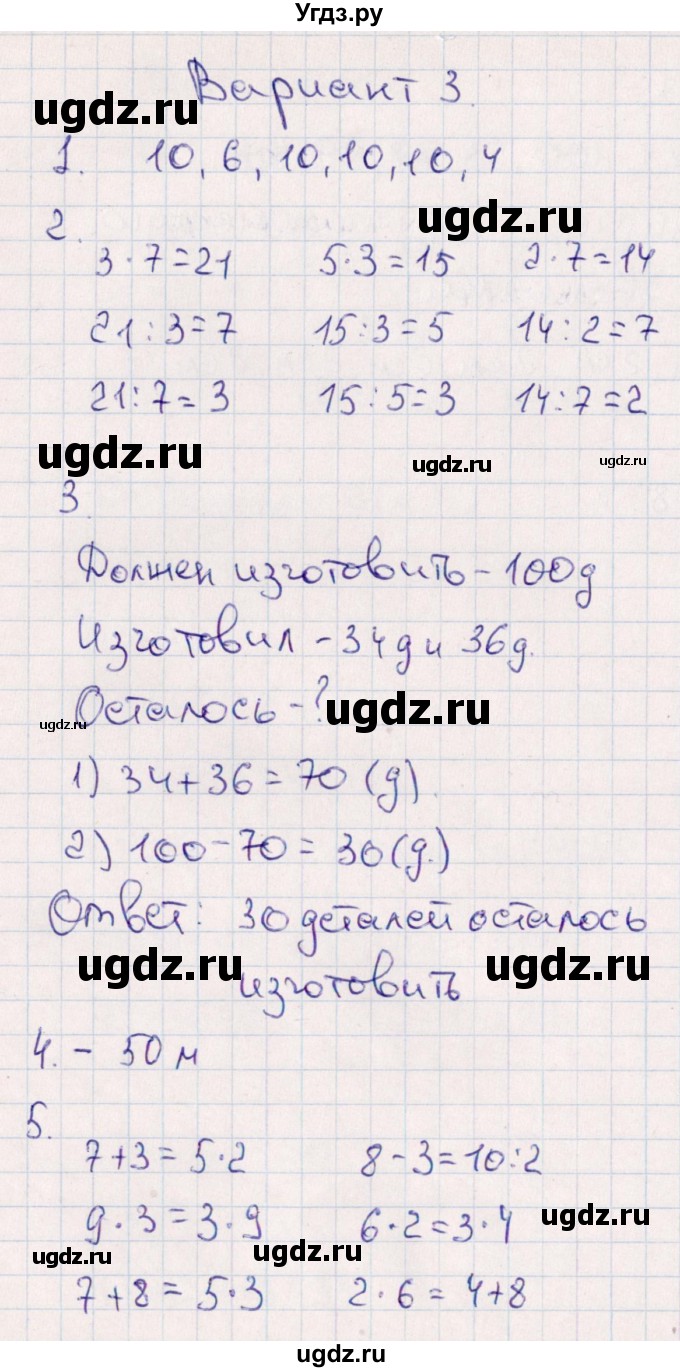 Угдз.ру
Вариант 3.
ugdz.ru
1. 10, 6, 10, 10, 10, 4
ugdz.ru
2.
3·7=21 5·3=15 2·7=14
21:3=7 15:3=5 14:2=7
21:7=3 15:5=3 14:7=2
ugdz.ru ugdz.ru ugdz.ru
3.
Должен изготовить - 100д
Изготовил - 34д и 36д.
Осталось - ?
ugdz.ru ugdz.ru
1) 34+36=70 (д).
2) 100-70=30(д.)
Ответ: 30 деталей осталось
изготовить
ugdz.ru ugdz.ru
4. - 50 м
5.
7+3=5·2 8-3=10:2
9·3=3·9 6·2=3·4
ugdz.ru ugdz.ru ugdz.ru
7+8=5·3 2·6=4+8
ugdz.ru